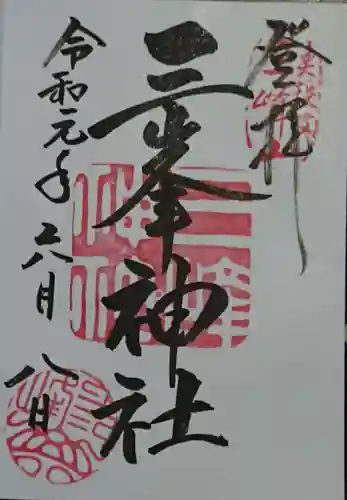 登拝
奥秩父
三峰山
三峯神社
三峰神社
令和元年六月八日